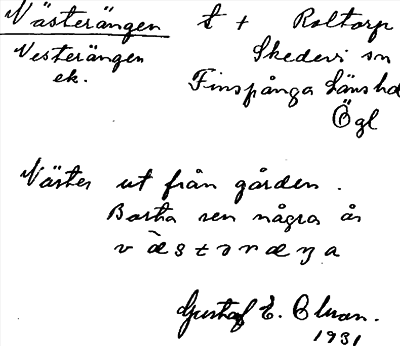 Västerängen t + Roltorp
Vesterängen Skedevi sn
ek. Finspånga länshd
Ögl
Väster ut från gården.
Borta sen några år
Gustaf E. Olsson.
1931